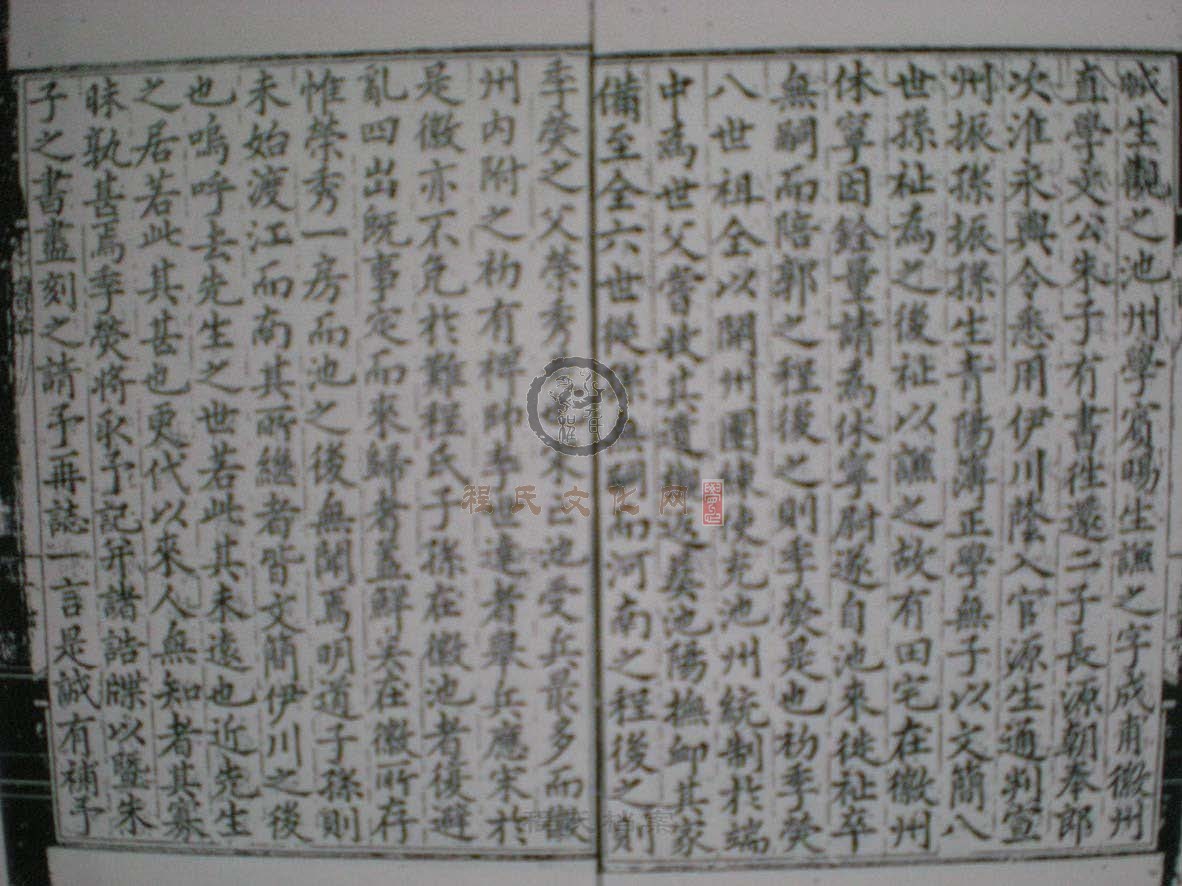 喊生觀之池州學賓暘生譙之字成甫徽州
直學夫公朱子有書徃還二子長源朝奉郎
次淮永興令悉用伊川蔭入官源生通判萱
州振孫振孫生青陽簿正學無子以文簡八
世孫祉為之後祉以譙之故有田宅在徽州
休寧因銓量請為休寧尉遂自池來徙祉卒
無嗣而陪郭之程後之則季葵是也初季葵
八世祖全以開州團練使充池州統制於端
中為世父嘗收其遺
池陽撫卹其家
備至全六世從孫無嗣而河南之程後之則
季葵之父榮秀
池受兵最多而徽
州內附之初有裨帥李世達者舉兵應宋於
是徽亦不免於難程氏子孫在徽池者復避
亂四出既事定而來歸者蓋鮮矣在徽所存
惟榮秀一房而池之後無聞焉明道子孫則
未始渡江而南其所繼
皆文簡伊川之後
也嗚呼去先生之世若此其未遠也近先生
之居若此其甚也更代以來人無知者其寡
昧孰甚焉季葵將求予記并諸誥牒以曁朱
子之書盡刻之請予再誌一言是誠有補予
程氏文化网